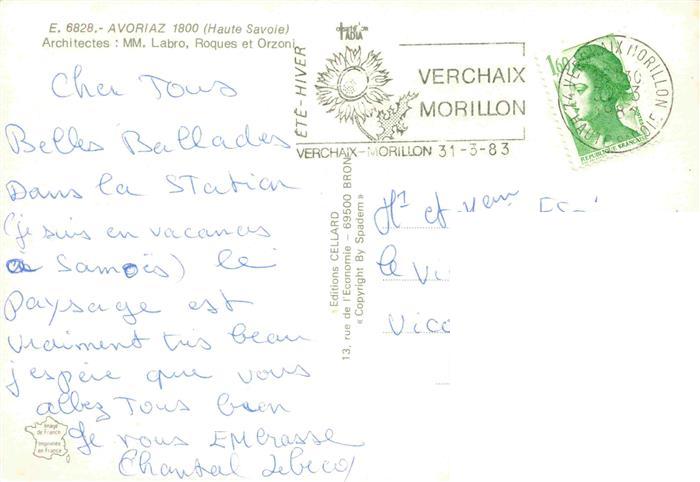 E. 6828.- AVORIAZ 1800 (Haute Savoie)
Architectes : MM. Labro, Roques et Orzoni
Cher Tous
Belles Ballades
Dans la Station
(je suis en vacances
à Samoës) le
paysage est
vraiment très beau
j'espère que vous
allez Tous bien
Je vous EMbrasse
Chantal
Image
de France
Imprimée
en France
ÉTÉ-HIVER
VERCHAIX
MORILLON
VERCHAIX-MORILLON 31-3-83
1,60
74 VERCHAIX MORILLON
HAUTE SAVOIE
REPUBLIQUE FRANÇAISE
« Editions CELLARD
13, rue de l'Economie – 69500 BRON
« Copyright By Spadem »
et
le